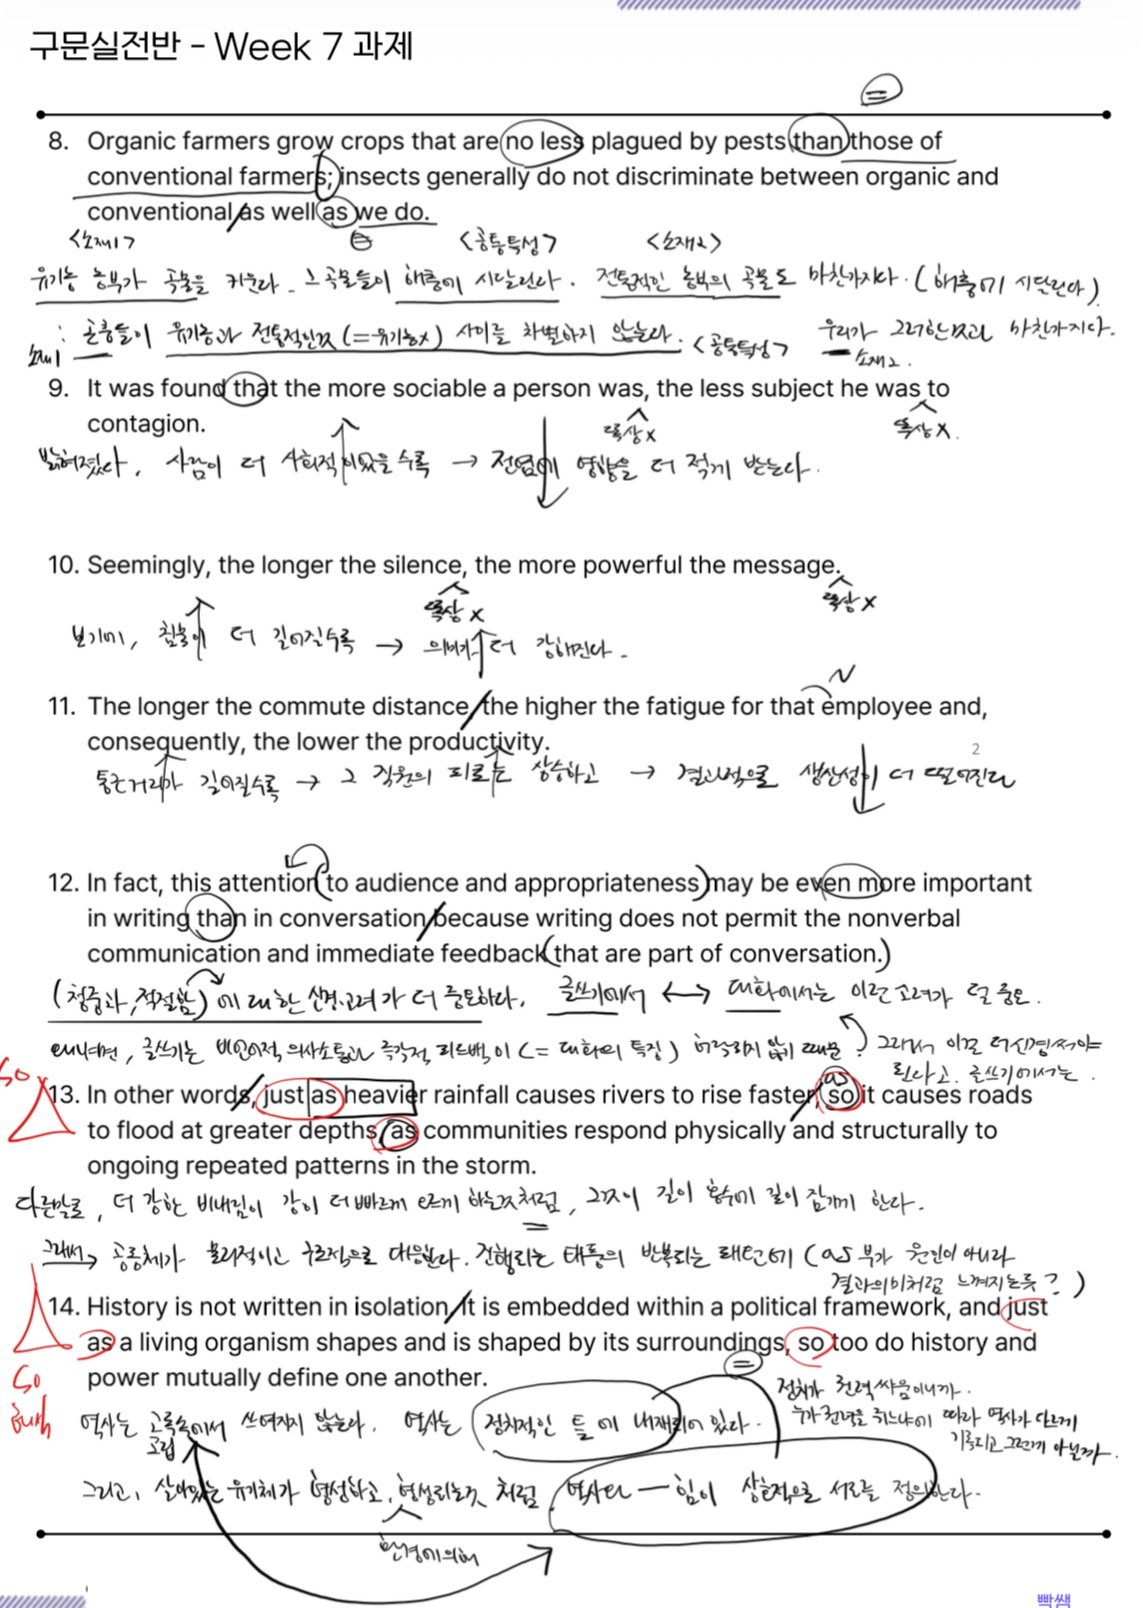 구문실전반 - Week 7 과제
=
8. Organic farmers grow crops that are no less plagued by pests than those of
conventional farmers; insects generally do not discriminate between organic and
conventional as well as we do.
<소재1> = <공통특성> <소재2>
유기농 농부가 곡물을 키운다. 그 곡물들이 해충에 시달린다. 전통적인 농부의 곡물도 마찬가지다. (해충에 시달린다)
: 곤충들이 유기농과 전통적인것 (=유기농x) 사이를 차별하지 않는다. <공통특성> 우리가 그러한것과 마찬가지다.
소재1 소재2.
9. It was found that the more sociable a person was, the less subject he was to
contagion.
뚝상x 뚝상x.
밝혀졌다, 사람이 더 사회적이었을수록 → 전염에 영향을 더 적게 받는다.
10. Seemingly, the longer the silence, the more powerful the message.
뚝상x 뚝상x
보기에, 침묵이 더 길어질수록 → 의미가 더 강해진다.
N
11. The longer the commute distance, the higher the fatigue for that employee and,
consequently, the lower the productivity.
2
통근거리가 길어질수록 → 그 직원의 피로는 상승하고 → 결과적으로 생산성이 더 떨어진다
12. In fact, this attention to audience and appropriateness may be even more important
in writing than in conversation because writing does not permit the nonverbal
communication and immediate feedback that are part of conversation.
(청중과, 적절함)에 대한 신경.고려가 더 중요하다. 글쓰기에서 ↔ 대화에서는 이런 고려가 덜 중요.
왜냐하면, 글쓰기는 비언어적 의사소통과 즉각적 피드백이 (= 대화의 특징) 허락되지 않기 때문? 그래서 이걸 더 신경써야
된다고. 글쓰기에서는.
so as
13. In other words, just as heavier rainfall causes rivers to rise faster, so it causes roads
to flood at greater depths, as communities respond physically and structurally to
ongoing repeated patterns in the storm.
다른말로, 더 강한 비내림이 강이 더 빠르게 오르게 하는것처럼, 그것이 길이 홍수에 깊이 잠기게 한다.
그래서→ 공동체가 물리적이고 구조적으로 대응한다. 진행되는 태풍의 반복되는 패턴에 (as 부가 원인이 아니라
결과의미처럼 느껴지는듯?)
14. History is not written in isolation, it is embedded within a political framework, and just
as a living organism shapes and is shaped by its surroundings, so too do history and
power mutually define one another.
so
=
정치가 권력싸움이니까.
누가 권력을 쥐느냐에 따라 역사가 다르게
기록되고 그런게 아닐까.
역사는 고륙속에서 쓰여지지 않는다. 역사는 정치적인 틀에 내재되어 있다.
고립
그리고, 살아있는 유기체가 형성하고, 형성되는것 처럼, 역사와 힘이 상호적으로 서로를 정의한다.
환경에의해
빡쌤